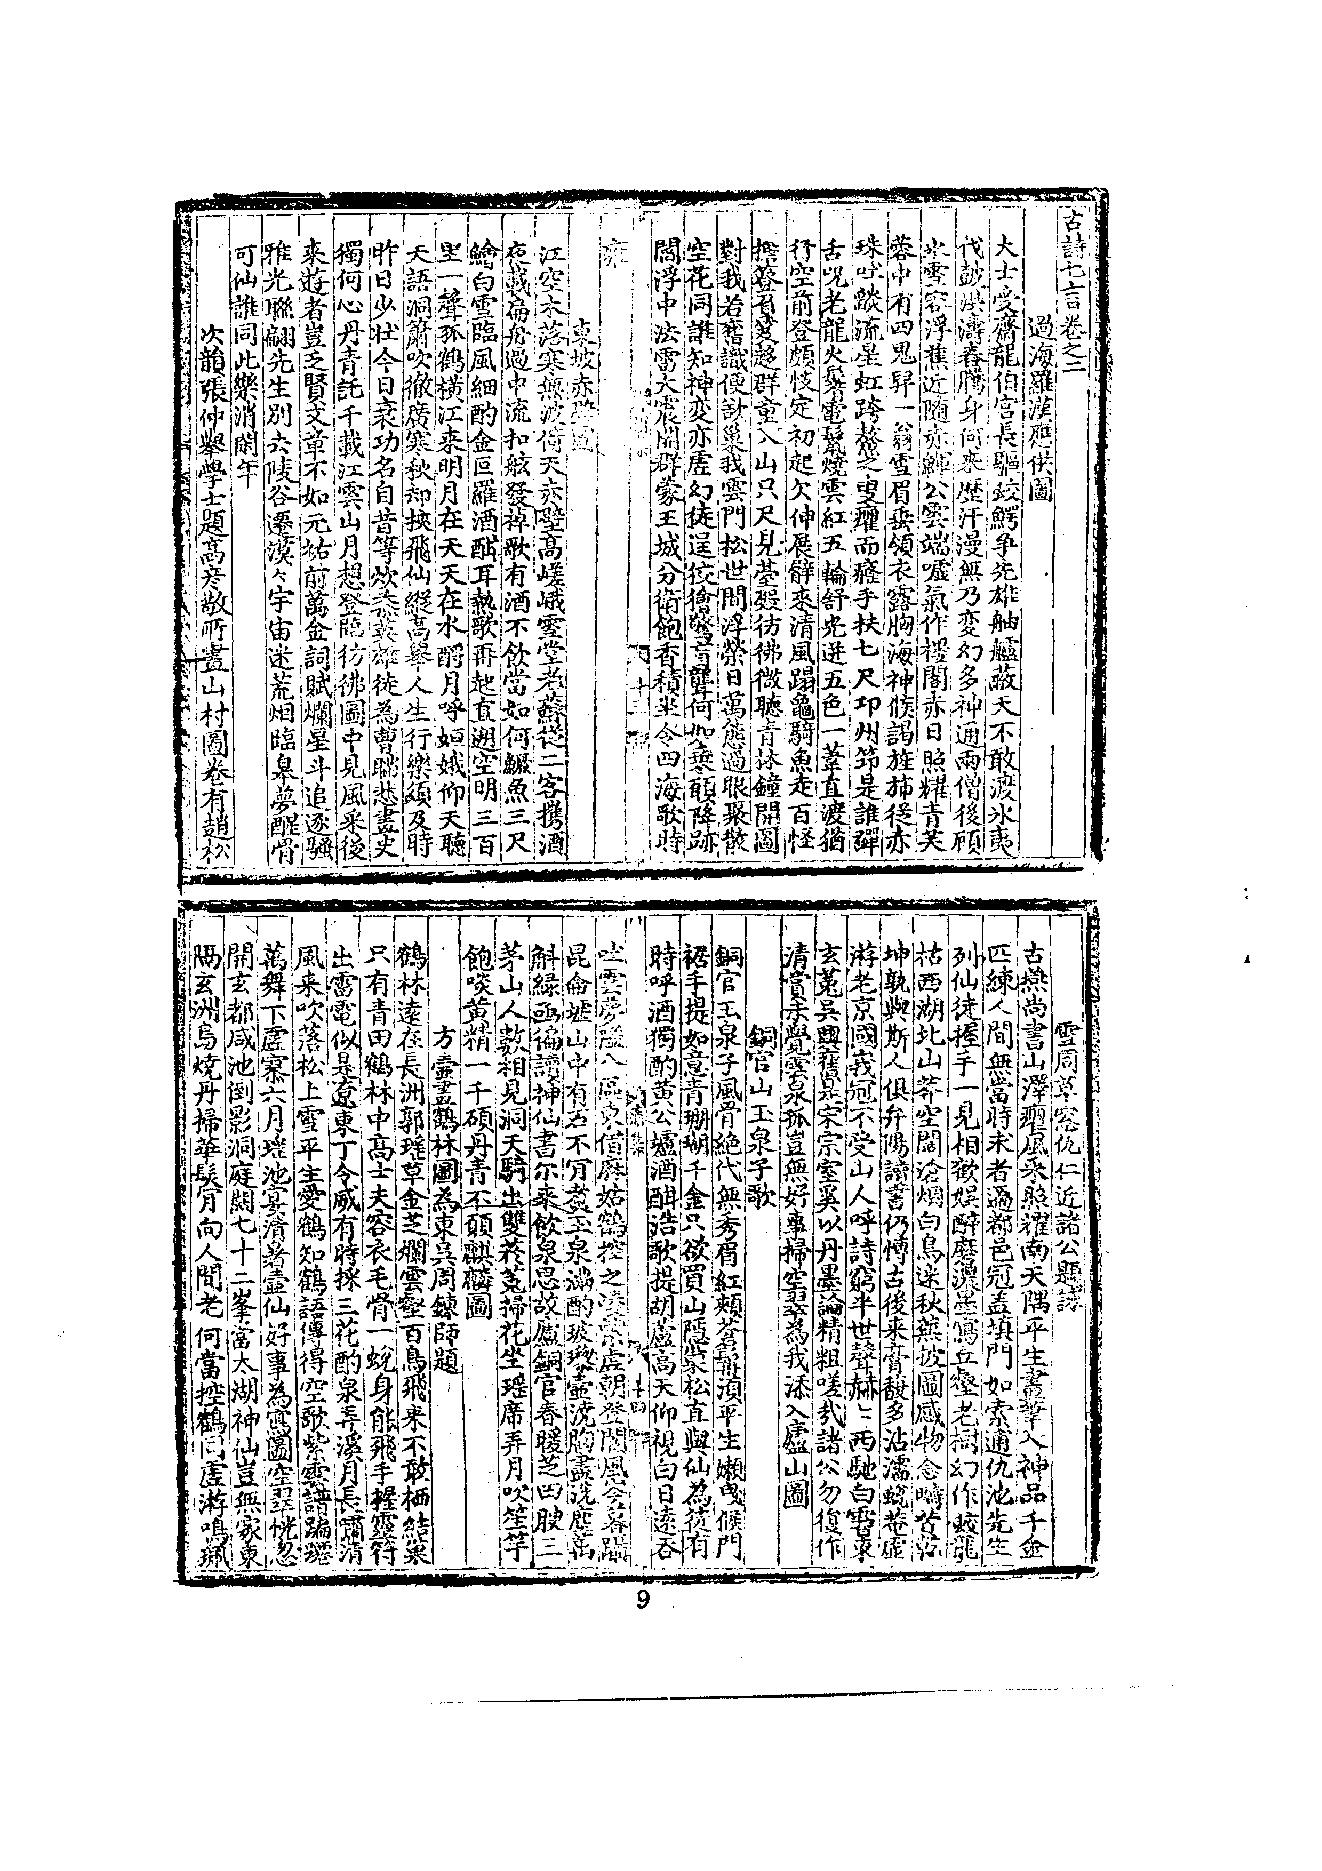 古詩七言卷之二
過海羅漢應供圖
大士受齋龍伯宮長驅蛟鰐爭先雄舳艫蔽天不敢渡氷夷
伐鼓洪濤舂騰身何來歷汗漫無乃变幻多神通兩僧後顧
氷雪容浮蕉近随赤鯶公雲端噓氣作樓閣赤日照耀青芙
蓉中有四鬼舁一翁雪眉垂領衣露胸海神候謁旌斾從赤
珠吐𦦨流星虹跨鰲之叟癯而癃手扶七尺邛州笻是誰彈
舌呪老龍火鬐電鬣燒雲紅五輪舒光迸五色一葦直渡猶
行空前登頗恠定初起欠伸展臂來清風蹋龜騎魚走百怪
擔簦有叟超群童入山只尺見臺殿彷彿微聽青林鐘開圖
對我若舊識便訪巢我雲門松世間浮榮日萬態過眼聚散
空花同誰知神变亦虛幻徒逞狡獪驚盲聾何如乗願降跡
閻浮中法雷大震開群蒙王城分衛飽香積坐令四海歌時
雍
東坡赤壁圖
江空木落寒無波倚天赤壁高嵯峨雪堂老蘇從二客攜酒
夜載扁舟過中流扣舷發棹歌有酒不飲當如何鱖魚三尺
鱠白雪臨風細酌金叵羅酒酣耳熱歌再起直遡空明三百
里一聲孤鶴橫江来明月在天天在水酹月呼姮娥仰天聽
天語洞簫吹徹廣寒秋却挾飛仙縱高舉人生行樂須及時
昨日少壯今日衰功名自昔等炊黍英雄徒為曹瞞悲畫史
獨何心丹青託千載江雲山月想登臨彷彿圖中見風采後
來遊者豈乏賢文章不如元祐前萬金詞賦爛星斗追逐騷
雅光聯翩先生別去陵谷遷漠々宇宙迷荒烟臨皋夢醒骨
可仙誰同此樂消閑年
次韻張仲舉學士題高彦敬所畫山村圖卷有趙松
雪周草窓仇仁近諸公題詠
古燕尚書山澤癯風采照耀南天隅平生畫筆入神品千金
匹練人間無當時来者過都邑冠盖填門如索逋仇池先生
列仙徒握手一見相歡娱醉磨濃墨寫丘壑老樹幻作蛟龍
枯西湖北山莽空闊滄烟白鳥迷秋蕪披圖感物念疇昔乾
坤孰與斯人俱弁陽讀書仍愽古後来膏馥多沾濡蛻菴虛
游老京國峩冠不受山人呼詩窮半世聲赫々西馳白霫東
玄菟吳興舊是宋宗室奚以丹墨論精粗嗟我諸公勿復作
清賞未覺雲泉孤豈無好事掃空翠為我添入廬山圖
銅官山玉泉子歌
銅官玉泉子風骨絕代無秀眉紅頰蒼鬚湏平生嬾曳候門
裾手提如意青珊瑚千金只欲買山隱梁松直與仙為徒有
時呼酒獨酌黄公壚酒酣浩歌提胡蘆高天仰視白日遠吞
吐雲夢隘八區東借麻姑鶴控之凌紫虛朝登閬風岑暮躡
昆侖墟山中有石不肯煮玉泉滿酌玻璃壷澆胸盡洗塵萬
斛綠函徧讀神仙書尒来飲泉思故廬銅官春暖芝田腴三
茅山人數相見洞天騎出雙於菟掃花坐瑶席弄月吹笙竽
飽啖黄精一千碩丹青不願麒麟圖
方壷畫鶴林圖為東吳周鍊師題
鶴林遠在長洲郭瑶草金芝爛雲壑百鳥飛来不敢栖結巢
只有青田鶴林中高士夫容衣毛骨一蛻身能飛手握靈符
出雷電似是遼東丁令威有時採三花酌泉弄溪月長嘯清
風来吹落松上雪平生愛鶴知鶴語傳得空歌紫雲譜蹁躚
萬舞下虛寥六月瑶池宴清暑壷仙好事為寫圖空翠恍忽
開玄都咸池倒影洞庭闊七十二峯當太湖神仙豈無家東
隅玄洲烏燒丹掃華髮肯向人間老何當控鶴囘虛游鳴珮
9